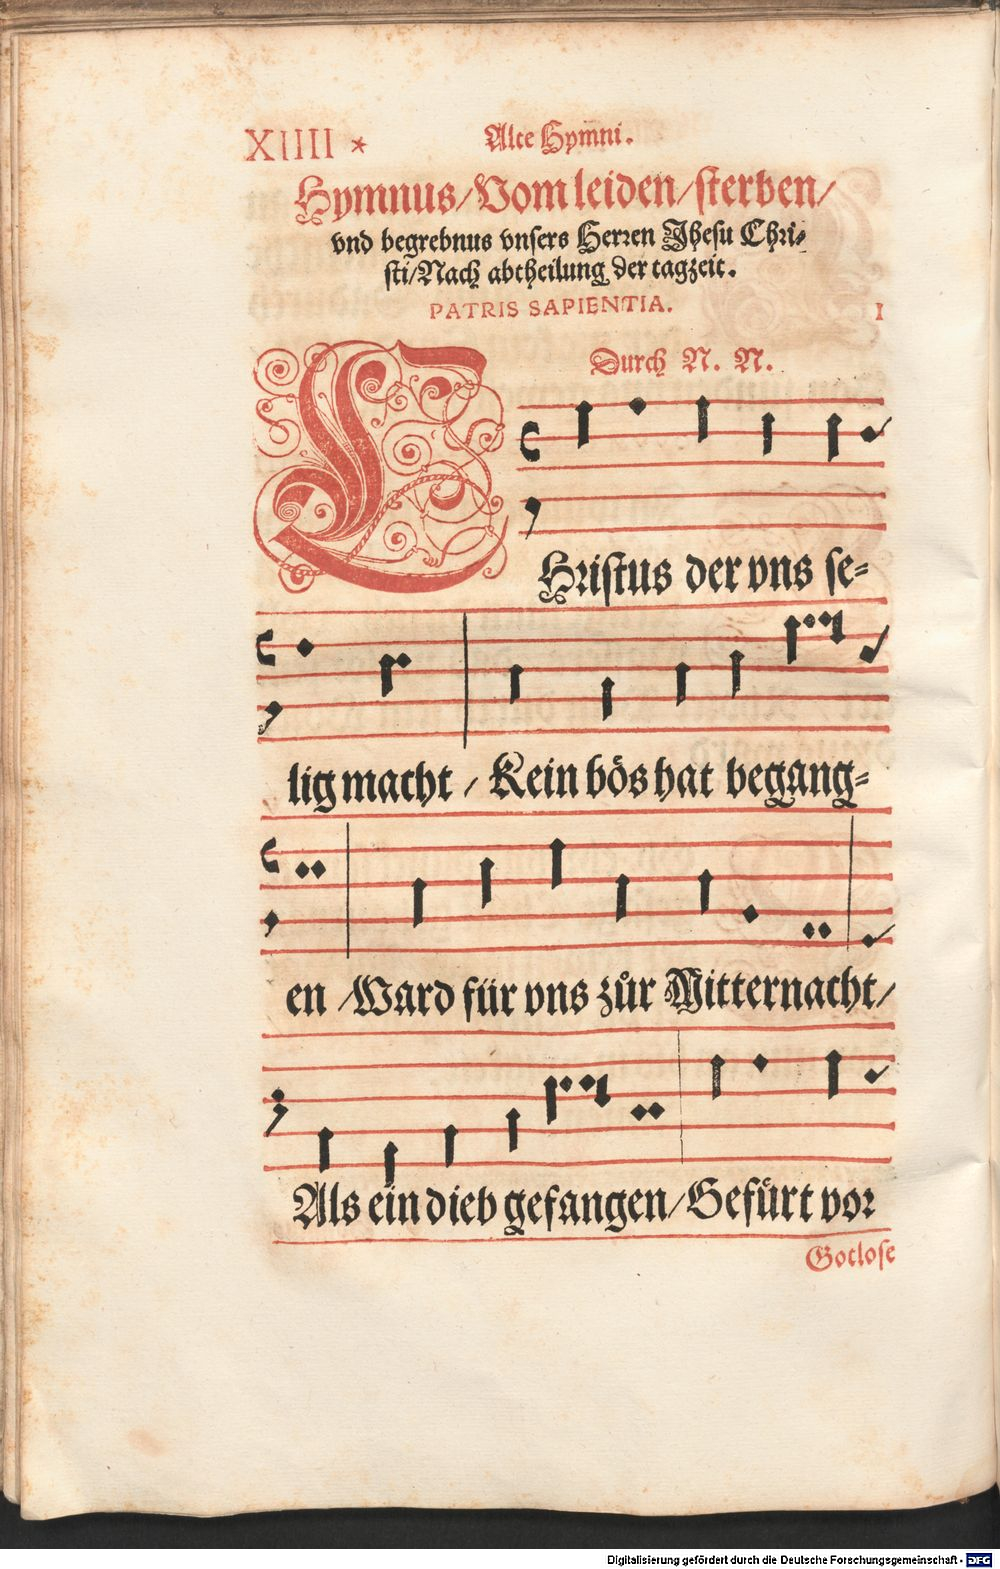 XIIII * Alte Hymni.
Hymnus/Vom leiden/sterben/
vnd begrebnus vnsers Herren Jhesu Chri-
sti/Nach abtheilung der tagzeit.
PATRIS SAPIENTIA. I
Durch N. N.
CHristus der vns se-
lig macht / Kein bös hat begang-
en /Ward für vns zůr Mitternacht/
Als ein dieb gefangen/Gefürt vor
Gotlose
Digitalisierung gefördert durch die Deutsche Forschungsgemeinschaft - DFG